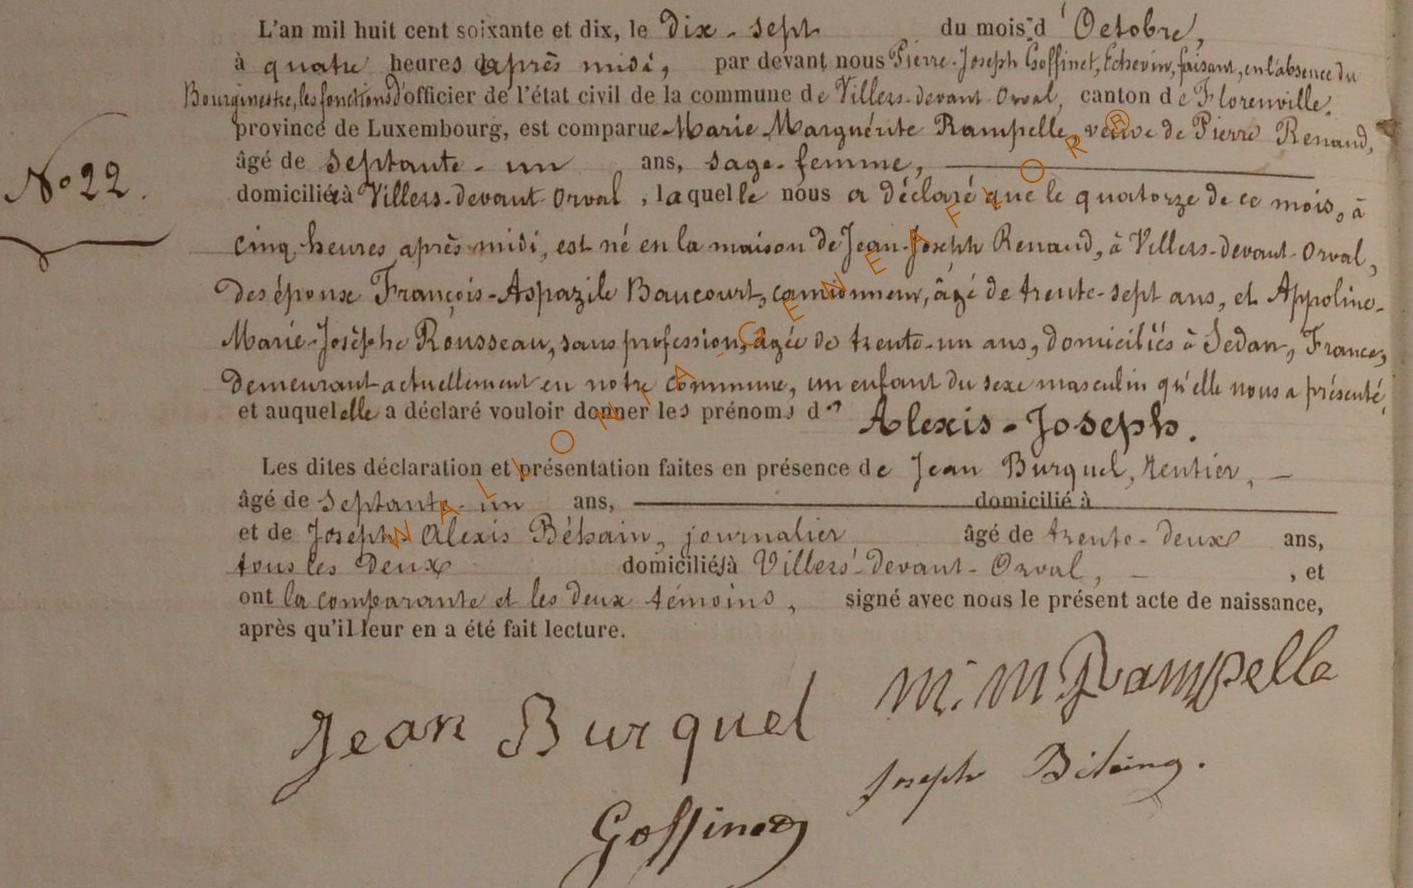 L'an mil huit cent soixante et dix, le dix-sept du mois d'Octobre,
à quatre heures d'après midi, par devant nous Pierre-Joseph Goffinet, Echevin, faisant, en l'absence du
Bourgmestre, les fonctions d'officier de l'état civil de la commune de Villers-devant-Orval, canton de Florenville,
province de Luxembourg, est comparue Marie Marguérite Rampelle, veuve de Pierre Renaud,
âgé de septante-un ans, sage-femme,
N° 22.
domiciliée à Villers-devant-Orval, laquelle nous a déclaré que le quatorze de ce mois, à
cinq heures après midi, est né en la maison de Jean-Joseph Renaud, à Villers-devant-Orval,
des époux François-Aspazile Baucourt, camionneur, âgé de trente-sept ans, et Appoline-
Marie-Josèphe Rousseau, sans profession, âgée de trente-un ans, domiciliés à Sedan, France,
demeurant actuellement en notre commune, un enfant du sexe masculin qu'elle nous a présenté,
et auquel elle a déclaré vouloir donner les prénoms d' Alexis-Joseph.
Les dites déclaration et présentation faites en présence de Jean Burquel, Rentier,
âgé de septante-un ans, domicilié à
et de Joseph Alexis journalier âgé de trente-deux ans,
tous les deux domiciliés à Villers-devant-Orval, , et
ont la comparante et les deux témoins, signé avec nous le présent acte de naissance,
après qu'il leur en a été fait lecture.
M. M Rampelle
Jean Burquel
Joseph
Goffinet
WALLONIA-GENEAFLOR®